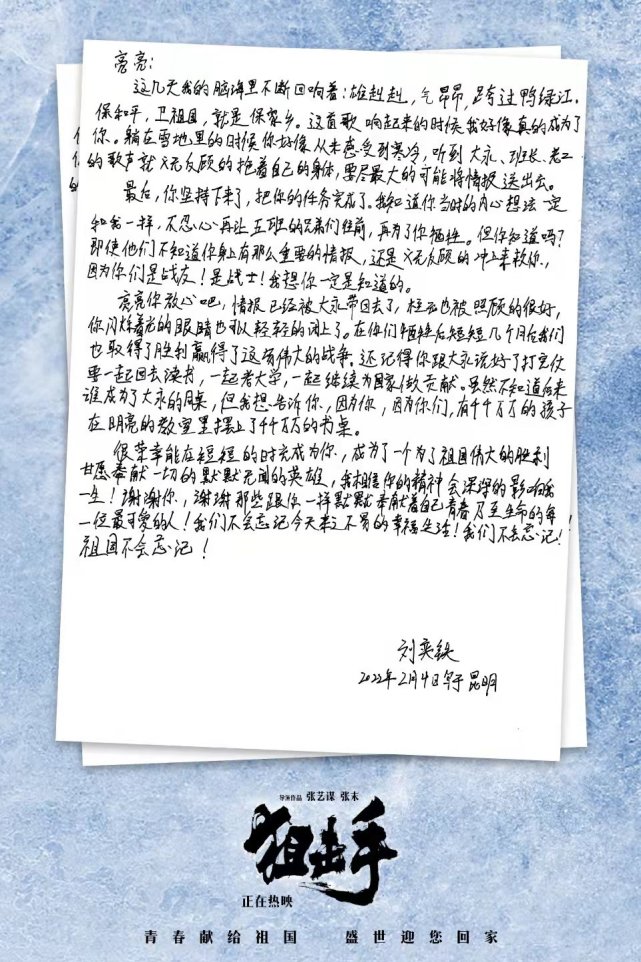 亮亮：
这几天我的脑海里不断回响着：雄赳赳，气昂昂，跨过鸭绿江.
保和平，卫祖国，就是保家乡。这首歌响起来的时候我好像真的成为了
你。躺在雪地里的时候你好像从未感受到寒冷，听到大永、班长、老工
的歌声就义无反顾的抱着自己的身体，要尽最大的可能将情报送出去。
最后，你坚持下来了，把你的任务完成了。我知道你当时的内心想法一定
和我一样，不忍心再让五班的兄弟们往前，再为了你牺牲。但你知道吗？
即使他们不知道你身上有那么重要的情报，还是义无反顾的冲上来救你，
因为你们是战友！是战士！我想你一定是知道的。
亮亮你放心吧，情报已经被大永带回去了，也被照顾的很好，
你闪烁着光的眼睛也可以轻轻的闭上了。在你们牺牲后短短几个月后我们
也取得了胜利赢得了这场伟大的战争。还记得你跟大永说好了打完仗
要一起回去读书，一起考大学，一起继续为国家做贡献。虽然不知道后来
谁成为了大永的同桌，但我想告诉你，因为你，因为你们，有千千万万的孩子
在明亮的教室里摆上了千千万万的书桌。
很荣幸能在短短的时光成为你，成为了一个为了祖国伟大的胜利
甘愿奉献一切的默默无闻的英雄，我相信你的精神会深深的影响我
一生！谢谢你，谢谢那些跟你一样默默奉献着自己青春乃至生命的每
一位最可爱的人！我们不会忘记今天来之不易的幸福生活！我们不会忘记！
祖国不会忘记！
刘奕铁
2022年2月4日写于昆明
导演作品 张艺谋 张末
狙击手
正在热映
青春献给祖国 盛世迎您回家